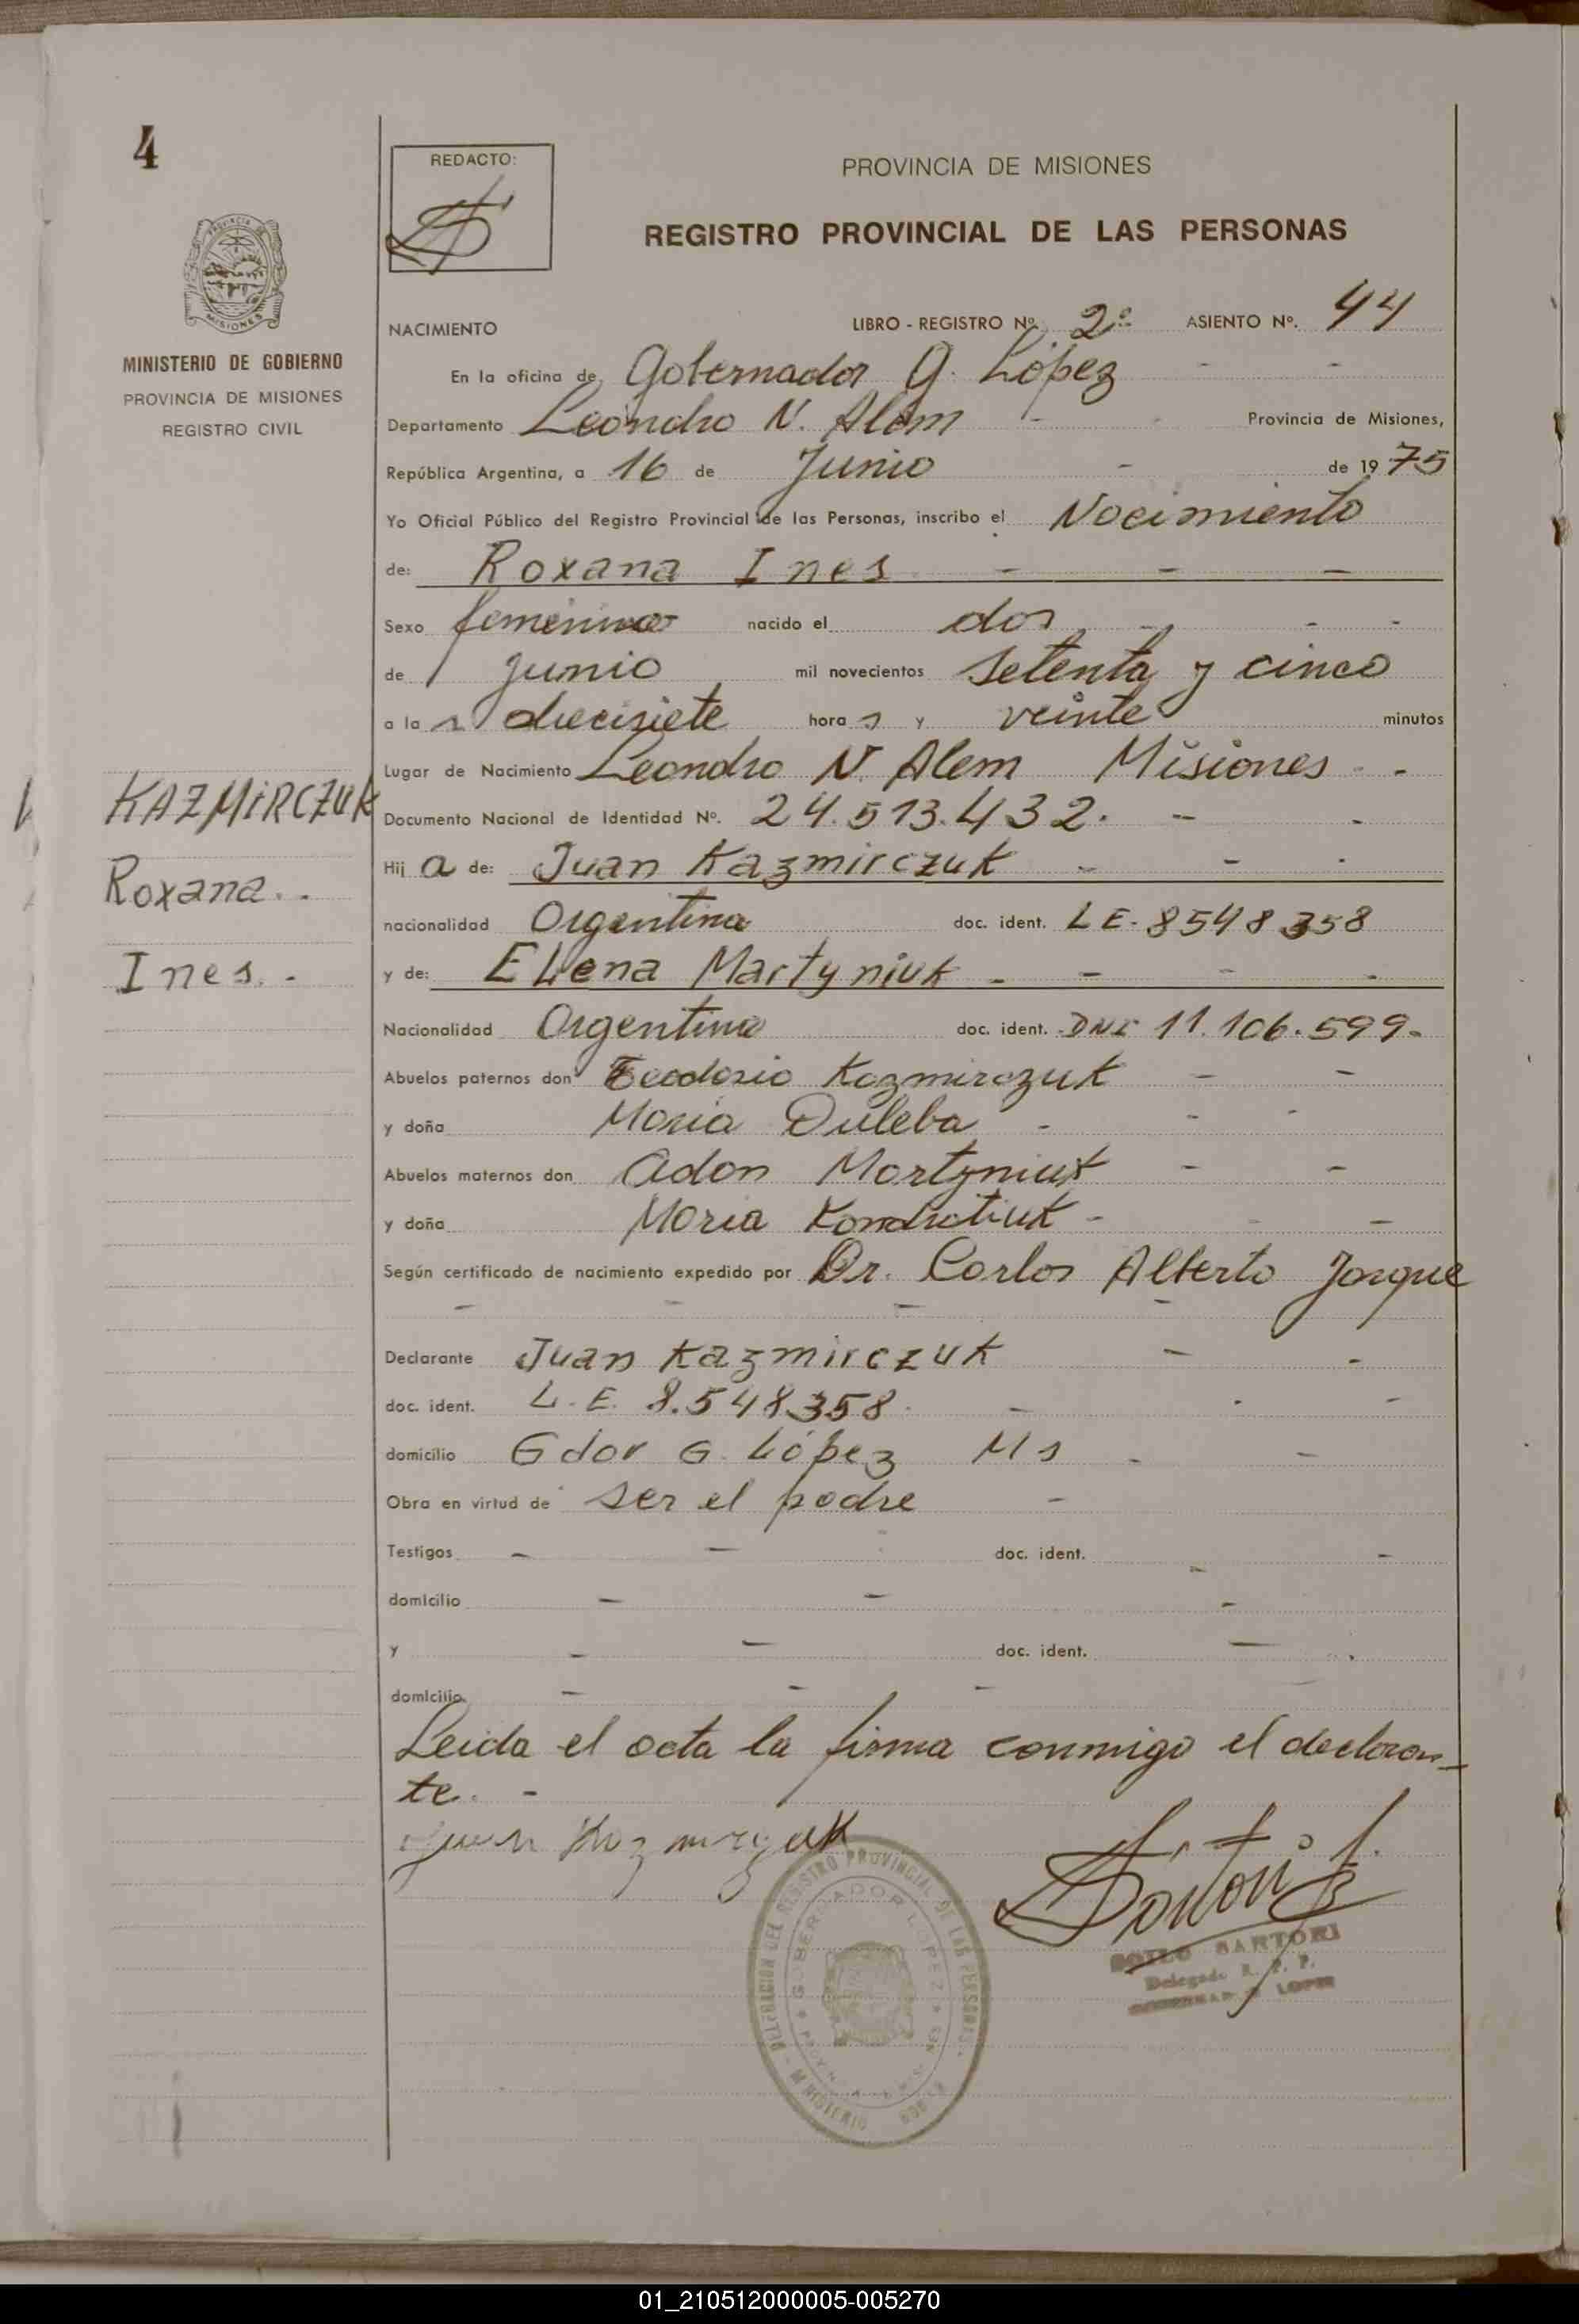 4
REDACTO:
PROVINCIA DE MISIONES
REGISTRO PROVINCIAL DE LAS PERSONAS
MISIONES
MINISTERIO DE GOBIERNO
PROVINCIA DE MISIONES
REGISTRO CIVIL
NACIMIENTO LIBRO - REGISTRO Nº. 2º ASIENTO Nº. 44
En la oficina de Gobernador G. López - -
Departamento Leandro N. Alem - - Provincia de Misiones,
República Argentina, a 16 de Junio - de 1975
Yo Oficial Público del Registro Provincial de las Personas, inscribo el Nacimiento
de: Roxana Ines - - -
Sexo femenino nacido el dos - - -
de Junio mil novecientos setenta y cinco
a la s diecisiete hora s y veinte minutos
Lugar de Nacimiento Leandro N. Alem Misiones - -
KAZMIRCZUK
Roxana. .
Ines. -
Documento Nacional de Identidad Nº. 24.513.432. - -
Hij a de: Juan Kazmirczuk - - -
nacionalidad Argentina doc. ident. LE. 8548358
y de: ELena Martyniuk - - - -
Nacionalidad Argentina doc. ident. DNI 11.106.599.
Abuelos paternos don Teodosio Kazmirczuk - -
y doña Maria Duleba - - -
Abuelos maternos don Adan Martyniuk - -
y doña Maria Kondratiuk - - -
Según certificado de nacimiento expedido por Dr. Carlos Alberto Jorque
- - - -
Declarante Juan Kazmirczuk - -
doc. ident. L.E. 8.548358. - - -
domicilio Gdor G. López Ms - -
Obra en virtud de ser el padre -
Testigos - - doc. ident. - -
domicilio - - -
y - - doc. ident. -
domicilio - - -
Leida el acta la firma conmigo el declaran-
te. -
Juan Kazmirczuk
DELEGACION DEL REGISTRO PROVINCIAL DE LAS PERSONAS
GOBERNADOR LOPEZ
MINISTERIO
SARTORI
Delegado R. P. P.
GOBERNADOR LOPEZ
01_210512000005-005270